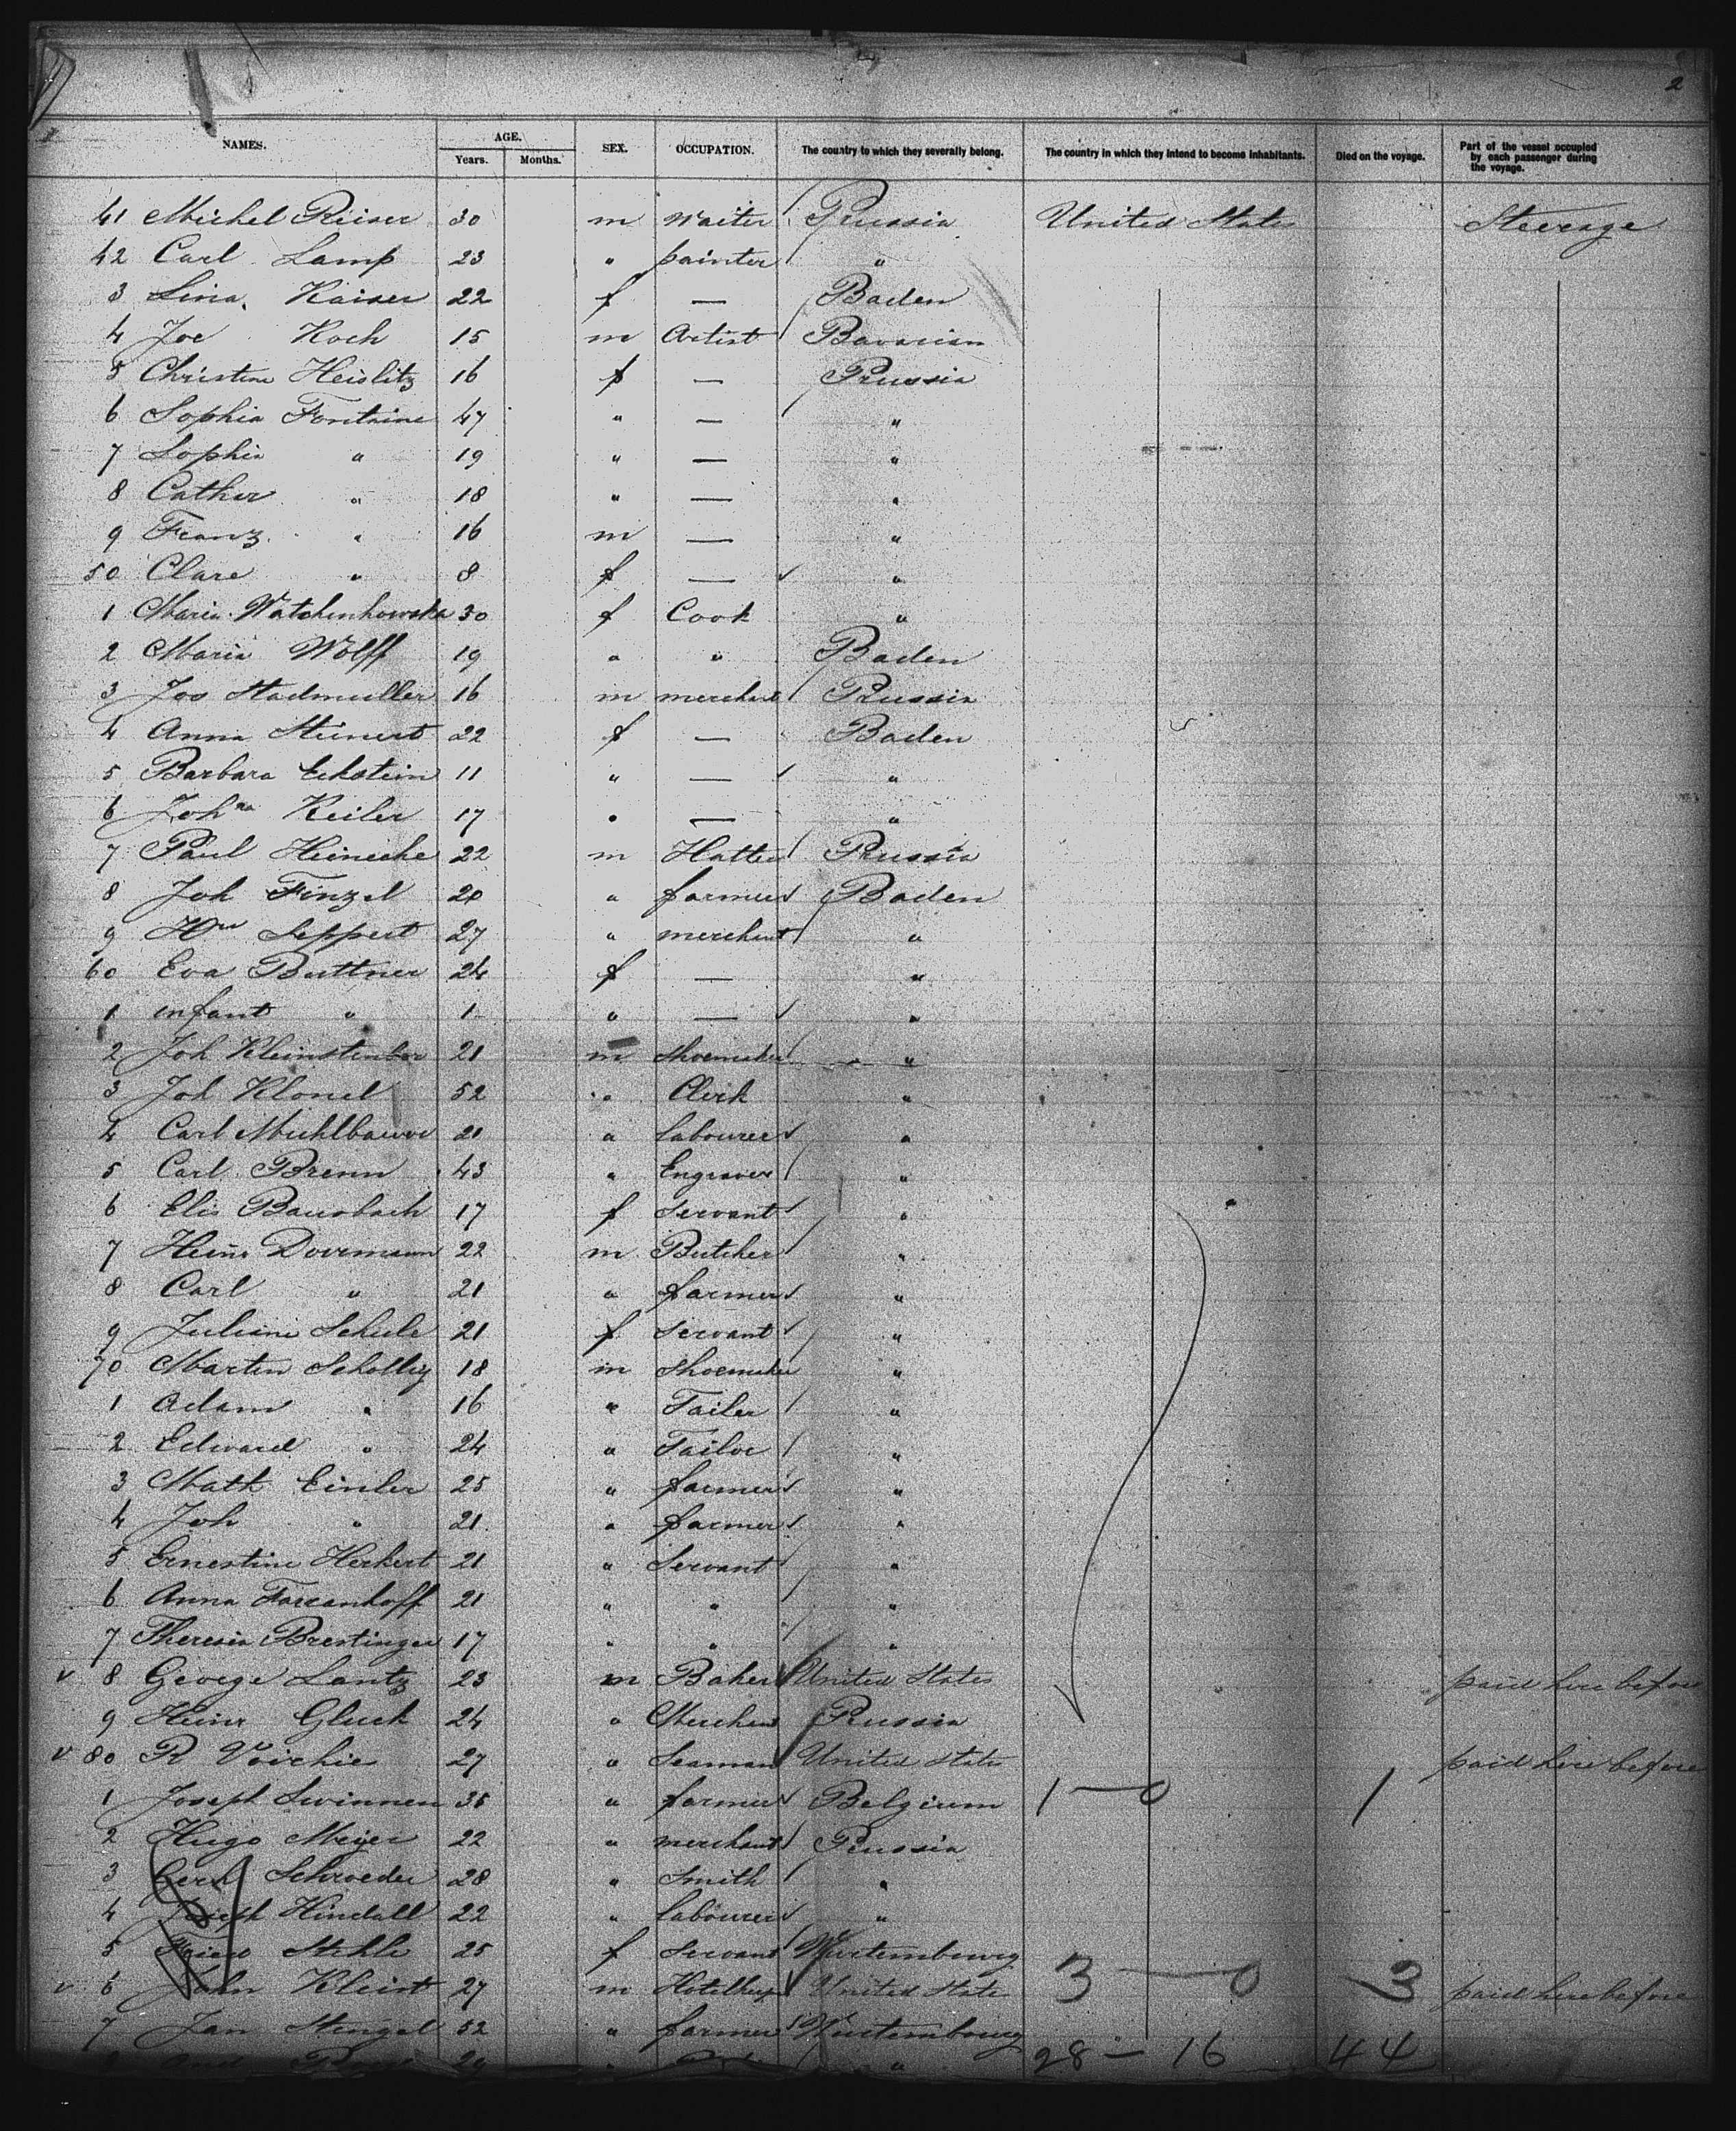 2
NAMES. AGE. SEX. OCCUPATION. The country to which they severally belong. The country in which they intend to become inhabitants. Died on the voyage. Part of the vessel occupied by each passenger during the voyage.
Years. Months.
41 Michel Reiser 30 m Waiter Prussia United States Steerage
42 Carl Lamp 23 " painter "
3 Lina Kaiser 22 f — Baden
4 Joe Koch 15 m Artist Bavarian
5 Christine Heislitz 16 f — Prussia
6 Sophia Fontaine 47 " — "
7 Sophia " 19 " — "
8 Cather " 18 " — "
9 Franz " 16 m — "
50 Clare " 8 f — "
1 Maria Watchenhowska 30 f Cook "
2 Maria Wolff 19 " " Baden
3 Jos Stadmuller 16 m merchant Prussia
4 Anna Steinert 22 f — Baden
5 Barbara Eckstein 11 " — "
6 Joh na Keiler 17 " — "
7 Paul Heinecke 22 m Hatter Prussia
8 Joh Finzel 20 " farmer Baden
9 Seppert 27 " merchant "
60 Eva Buttner 24 f — "
1 infant " 1 " — "
2 Joh 21 m Shoemaker "
3 Joh Klonel 52 " Clerk "
4 Carl Muhlbauer 21 " Labourer "
5 Carl Brenn 43 " Engraver "
6 Elis Bausbach 17 f Servant "
7 Heinr Dovermann 22 m Butcher "
8 Carl " 21 " farmer "
9 Juliani Schule 21 f Servant "
70 Martin Schollig 18 m Shoemaker "
1 Adam " 16 " Tailer "
2 Edward " 24 " Tailor "
3 Math Einler 25 " farmer "
4 Joh " 21 " farmer "
5 Ernestine Herkert 21 " Servant "
6 Anna Farcanhoff 21 " " "
7 Theresia Brestinger 17 " " "
v 8 George Lantz 23 m Baker United States paid here before
9 Heinr Gluck 24 " Merchant Prussia
v 80 R Voirhies 27 " Seaman United States paid here before
1 Joseph Swinnen 35 " farmer Belgium 1 — 0 1
2 Hugo Meyer 22 " merchant Prussia
3 Gerh Schroeder 28 " Smith "
4 Joseph Hindall 22 " Labourer "
5 Stehle 25 f Servant Wurtembourg
v 6 John Kleist 27 m Hotelkeep United States 3 — 0 3 paid here before
7 Jan Stengel 52 " farmer Wurtembourg
29 " 28 — 16 44